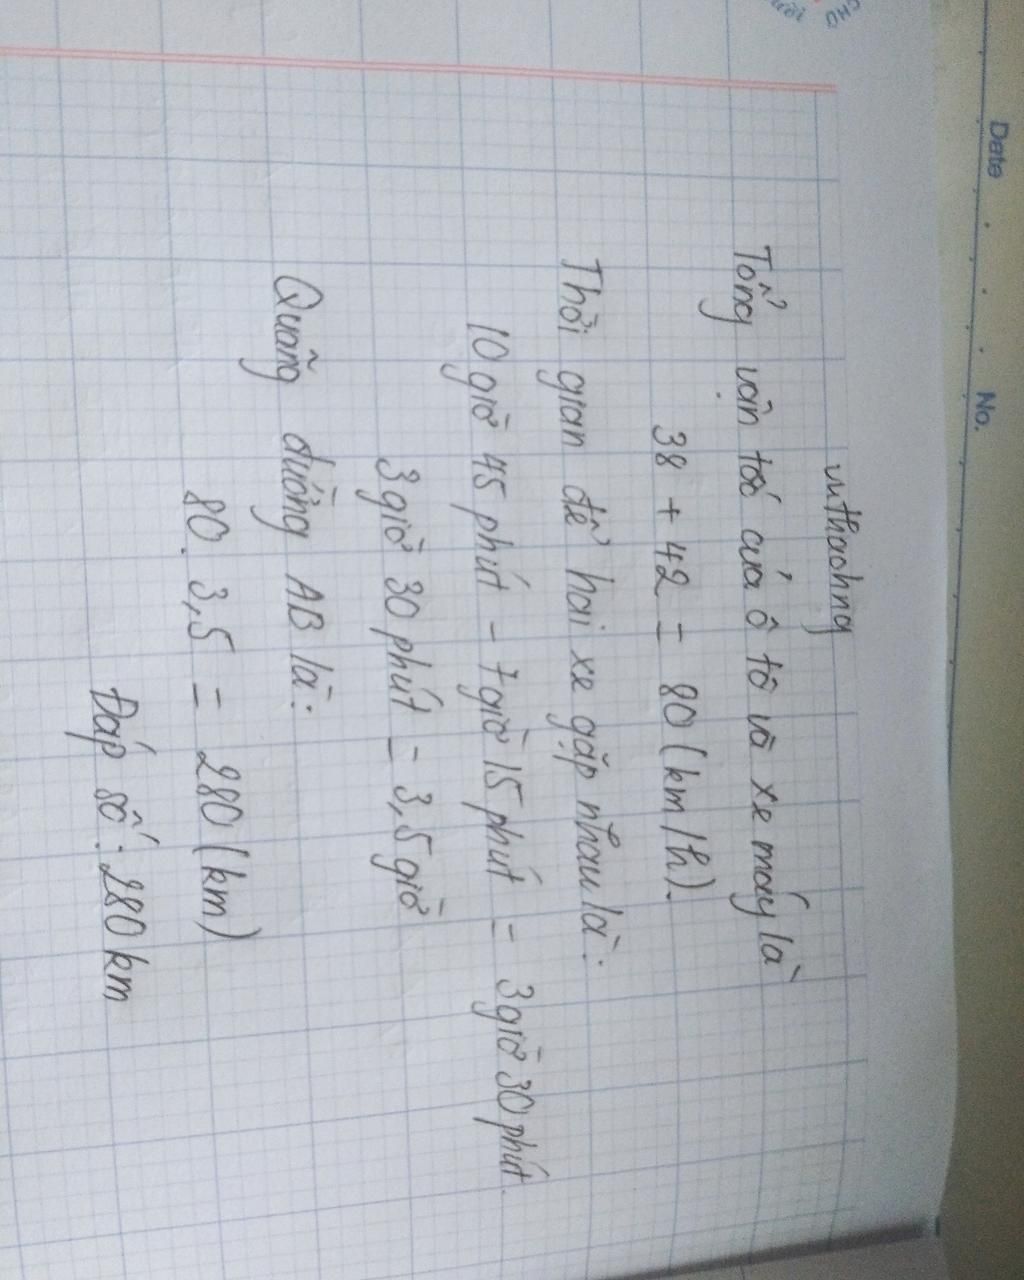 Date . . . No.
vuthaohng
Tổng vận tốc của ô tô và xe máy là
38 + 42 = 80 (km/h).
Thời gian để hai xe gặp nhau là:
10 giờ 45 phút - 7 giờ 15 phút = 3 giờ 30 phút.
3 giờ 30 phút = 3,5 giờ
Quãng đường AB là:
80. 3,5 = 280 (km)
Đáp số: 280 km